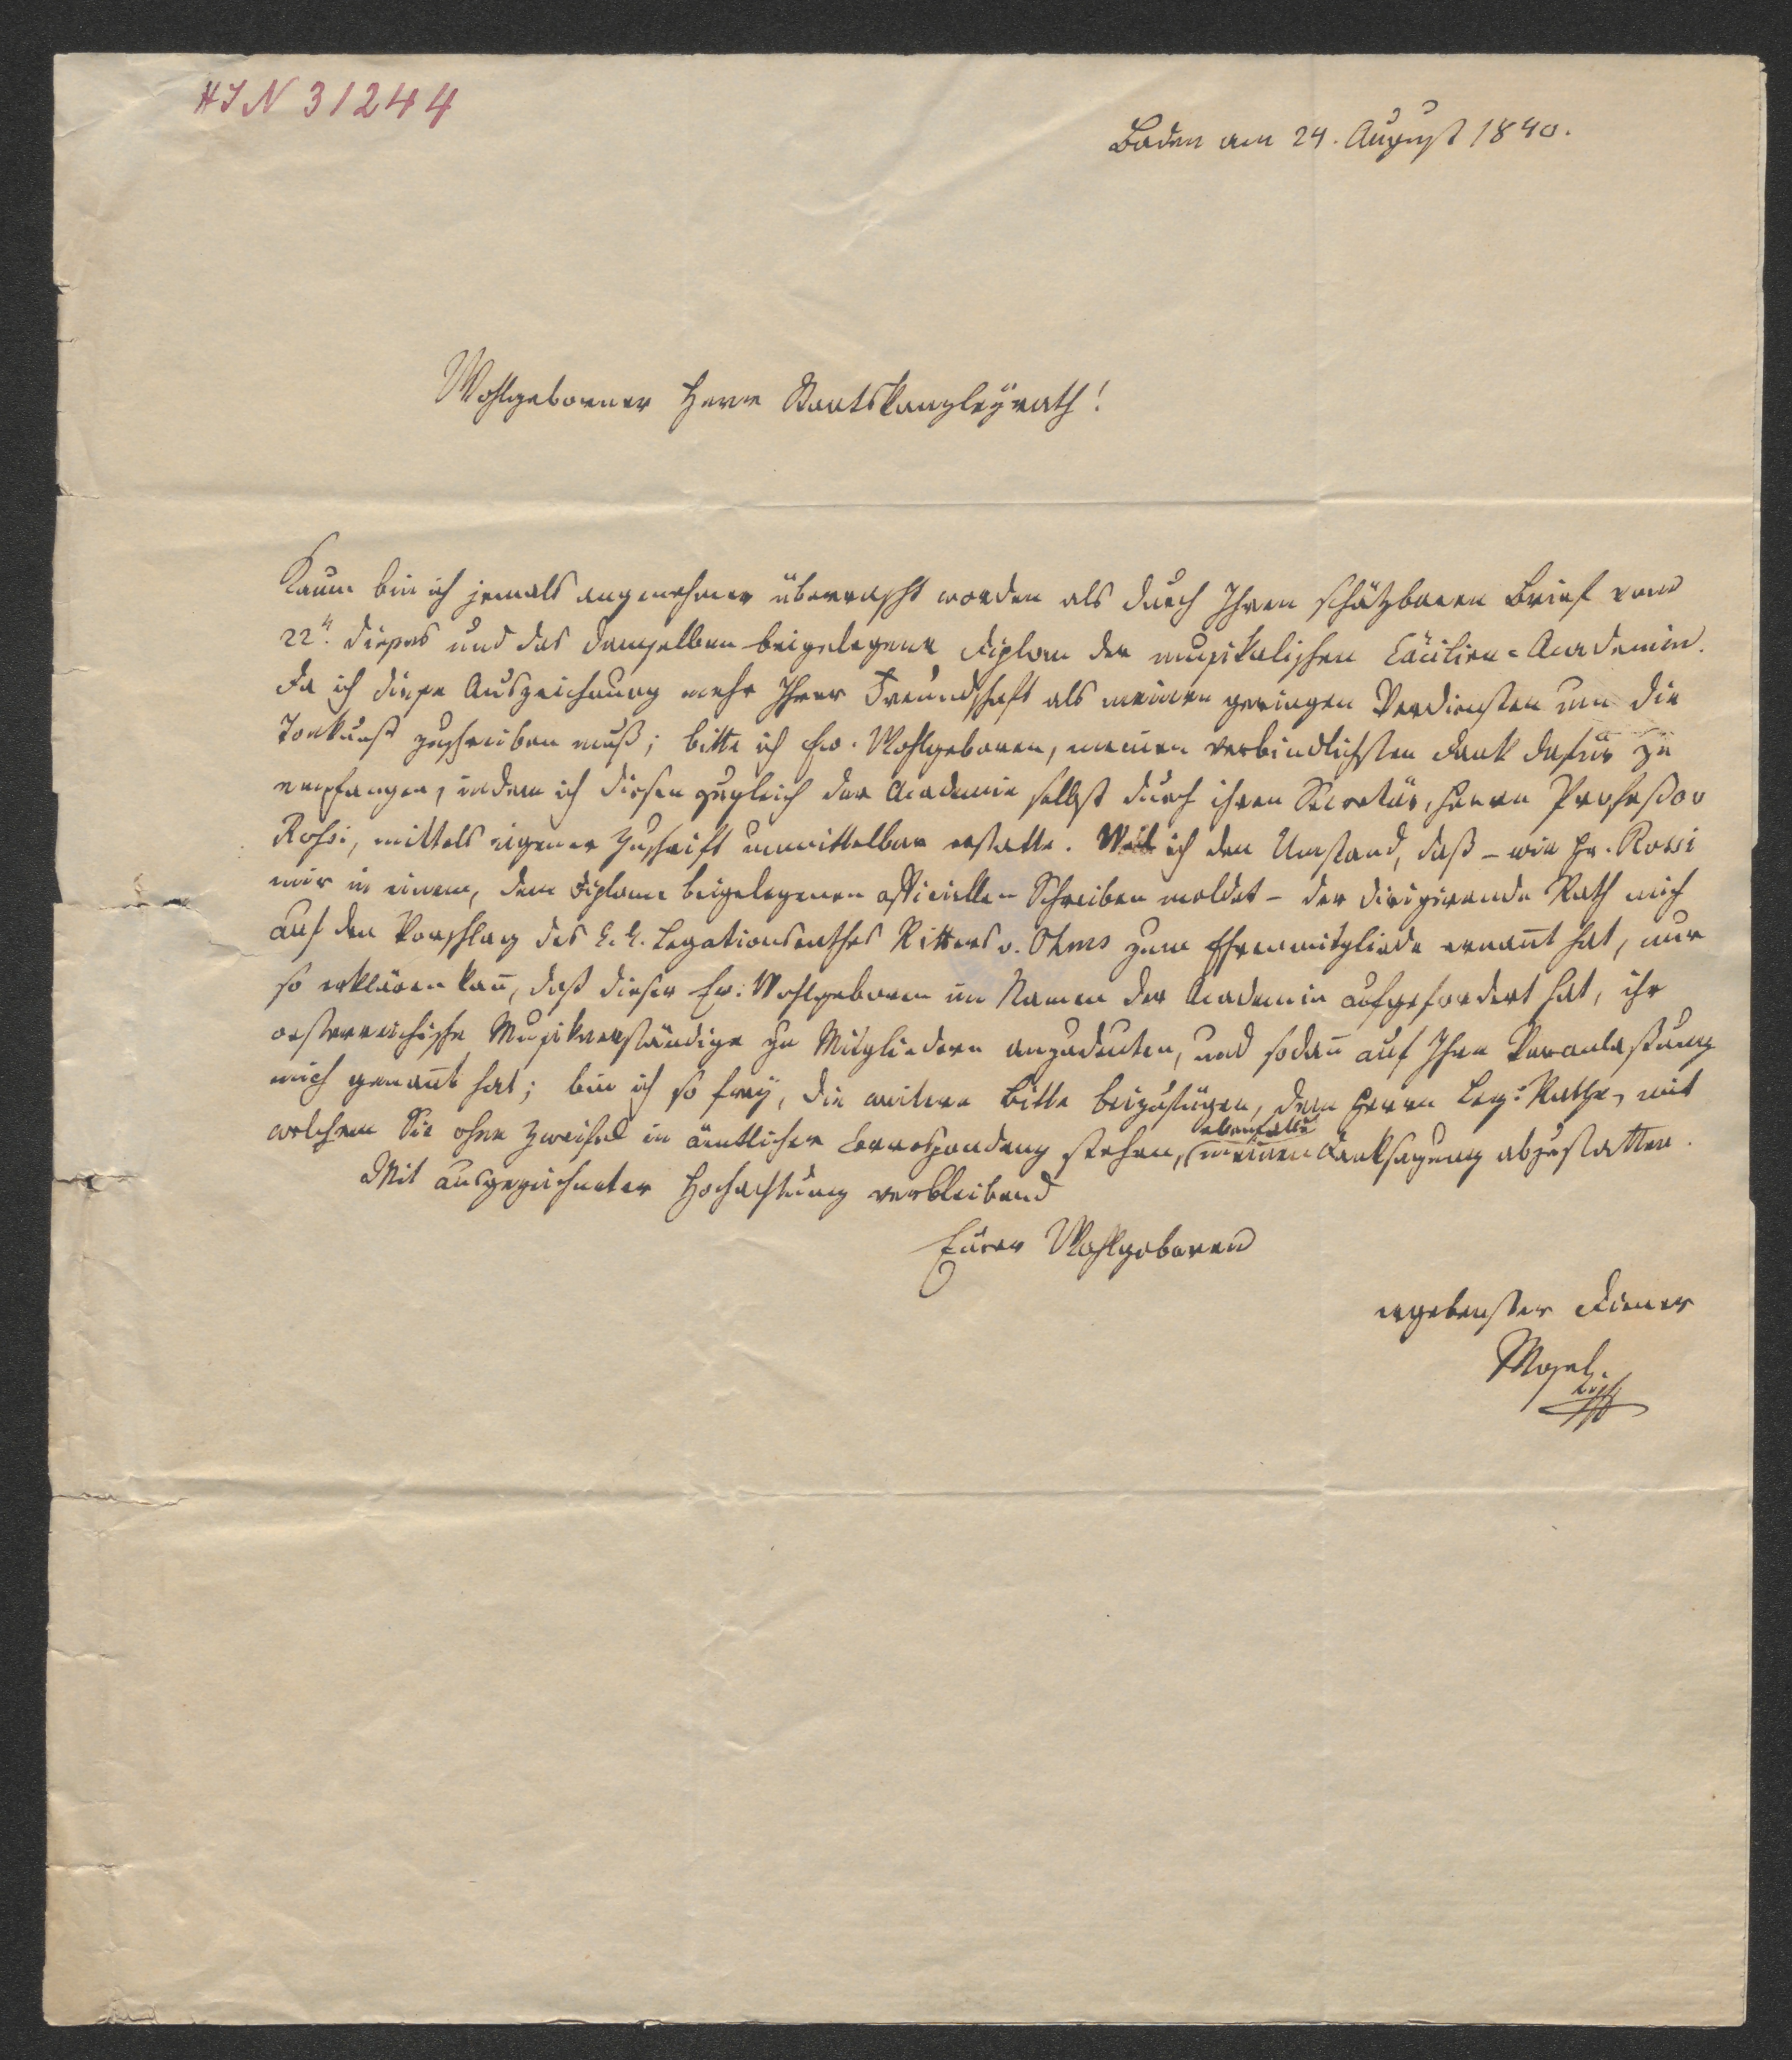 HIN 31244
Baden am 24. August 1840.
Wohlgeborner Herr Staatskanzleyrath!
Kaum bin ich jemals angenehmer überrascht worden als durch Ihren schätzbaren Brief vom
22n. dieses und das demselben beigelegene Diplom der musikalischen Cäcilien-Academie.
Da ich diese Auszeichnung mehr Ihrer Freundschaft als meinen geringen Verdiensten um die
Tonkunst zuschreiben muß; bitte ich Ew. Wohlgeboren, meinen verbindlichsten Dank dafür zu
empfangen, indem ich diesen zugleich der Academie selbst durch ihren Secretär, Herrn Professor
Rossi, mittels eigener Zuschrift unmittelbar erstatte. Weil ich den Umstand, daß – wie Hr. Rossi
mir in einem, dem Diplome beigelegenen officiellen Schreiben meldet – der dirigirende Rath mich
auf den Vorschlag des k. k. Legationsrathes Ritters v. Ohms zum Ehrenmitgliede ernañt hat, nur
so erklären kañ, daß dieser Ew. Wohlgeboren im Namen der Academie aufgefordert hat, ihr
oesterreichische Musikverständige zu Mitgliedern anzudeuten, und sodañ auf Ihre Veranlassung
mich genañt hat; bin ich so frey, die weitere Bitte beizufügen, dem Herrn Leg: Rathe, mit
welchem Sie ohne Zweifel in ämtlicher Correspondenz stehen, ebenfalls meinen Danksagung abzustatten.
Mit ausgezeichneter Hochachtung verbleibend
Eurer Wohlgeboren
ergebenster Diener
Mosel